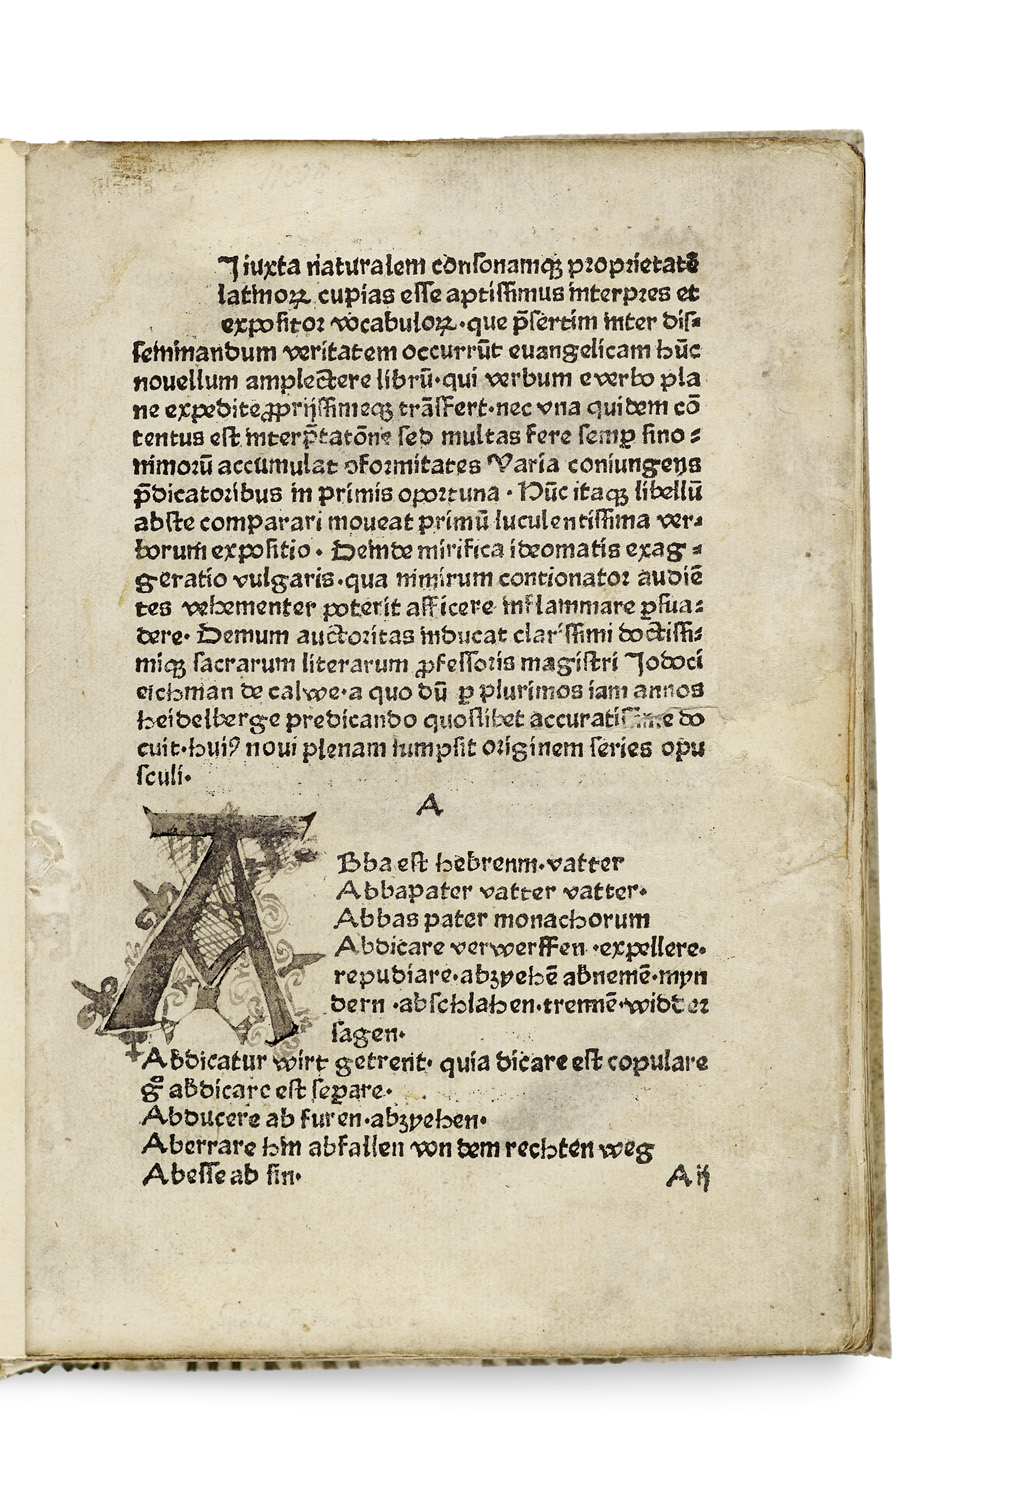 Iiuxta naturalem consonamqꝫ proprietatē
latinoꝝ cupias esse aptissimus interpres et
expositor vocabuloꝝ·que p̄sertim inter dis⸗
seminandum veritatem occurrūt euangelicam hūc
nouellum amplectere librū·qui verbum e verbo pla
ne expedite ꝓprijssimeqꝫ trāsfert·nec vna quidem cō
tentus est interp̄tatōne sed multas fere semꝑ sino⸗
nimorū accumulat ↄformitates Varia coniungens
p̄dicatoribus in primis oportuna · Nūc itaqꝫ libellū
abste comparari moueat primū luculentissima ver⸗
borum expositio · Deinde mirifica ideomatis exag⸗
geratio vulgaris·qua nimirum contionator audiē
tes vehementer poterit afficere inflammare ꝑsua⸗
dere· Demum auctoritas inducat clarissimi doctissi⸗
miqꝫ sacrarum literarum ꝓfessoris magistri Jodoci
eichman de calwe·a quo dū ꝑ plurimos iam annos
heidelberge predicando quoslibet accuratissime do
cuit·huiꝰ noui plenam sumpsit originem series opu
sculi·
A
A Bba est hebreum·vatter
Abbapater vatter vatter·
Abbas pater monachorum
Abdicare verwerffen ·expellere·
repudiare·abzyehē abnemē·myn
dern ·abschlahen·trennē·widder
sagen·
Abdicatur wirt getrent· quia dicare est copulare
gͦ abdicare est separe·
Abducere ab furen·abzyehen·
Aberrare hin abfallen von dem rechten weg
Abesse ab sin·
A ij